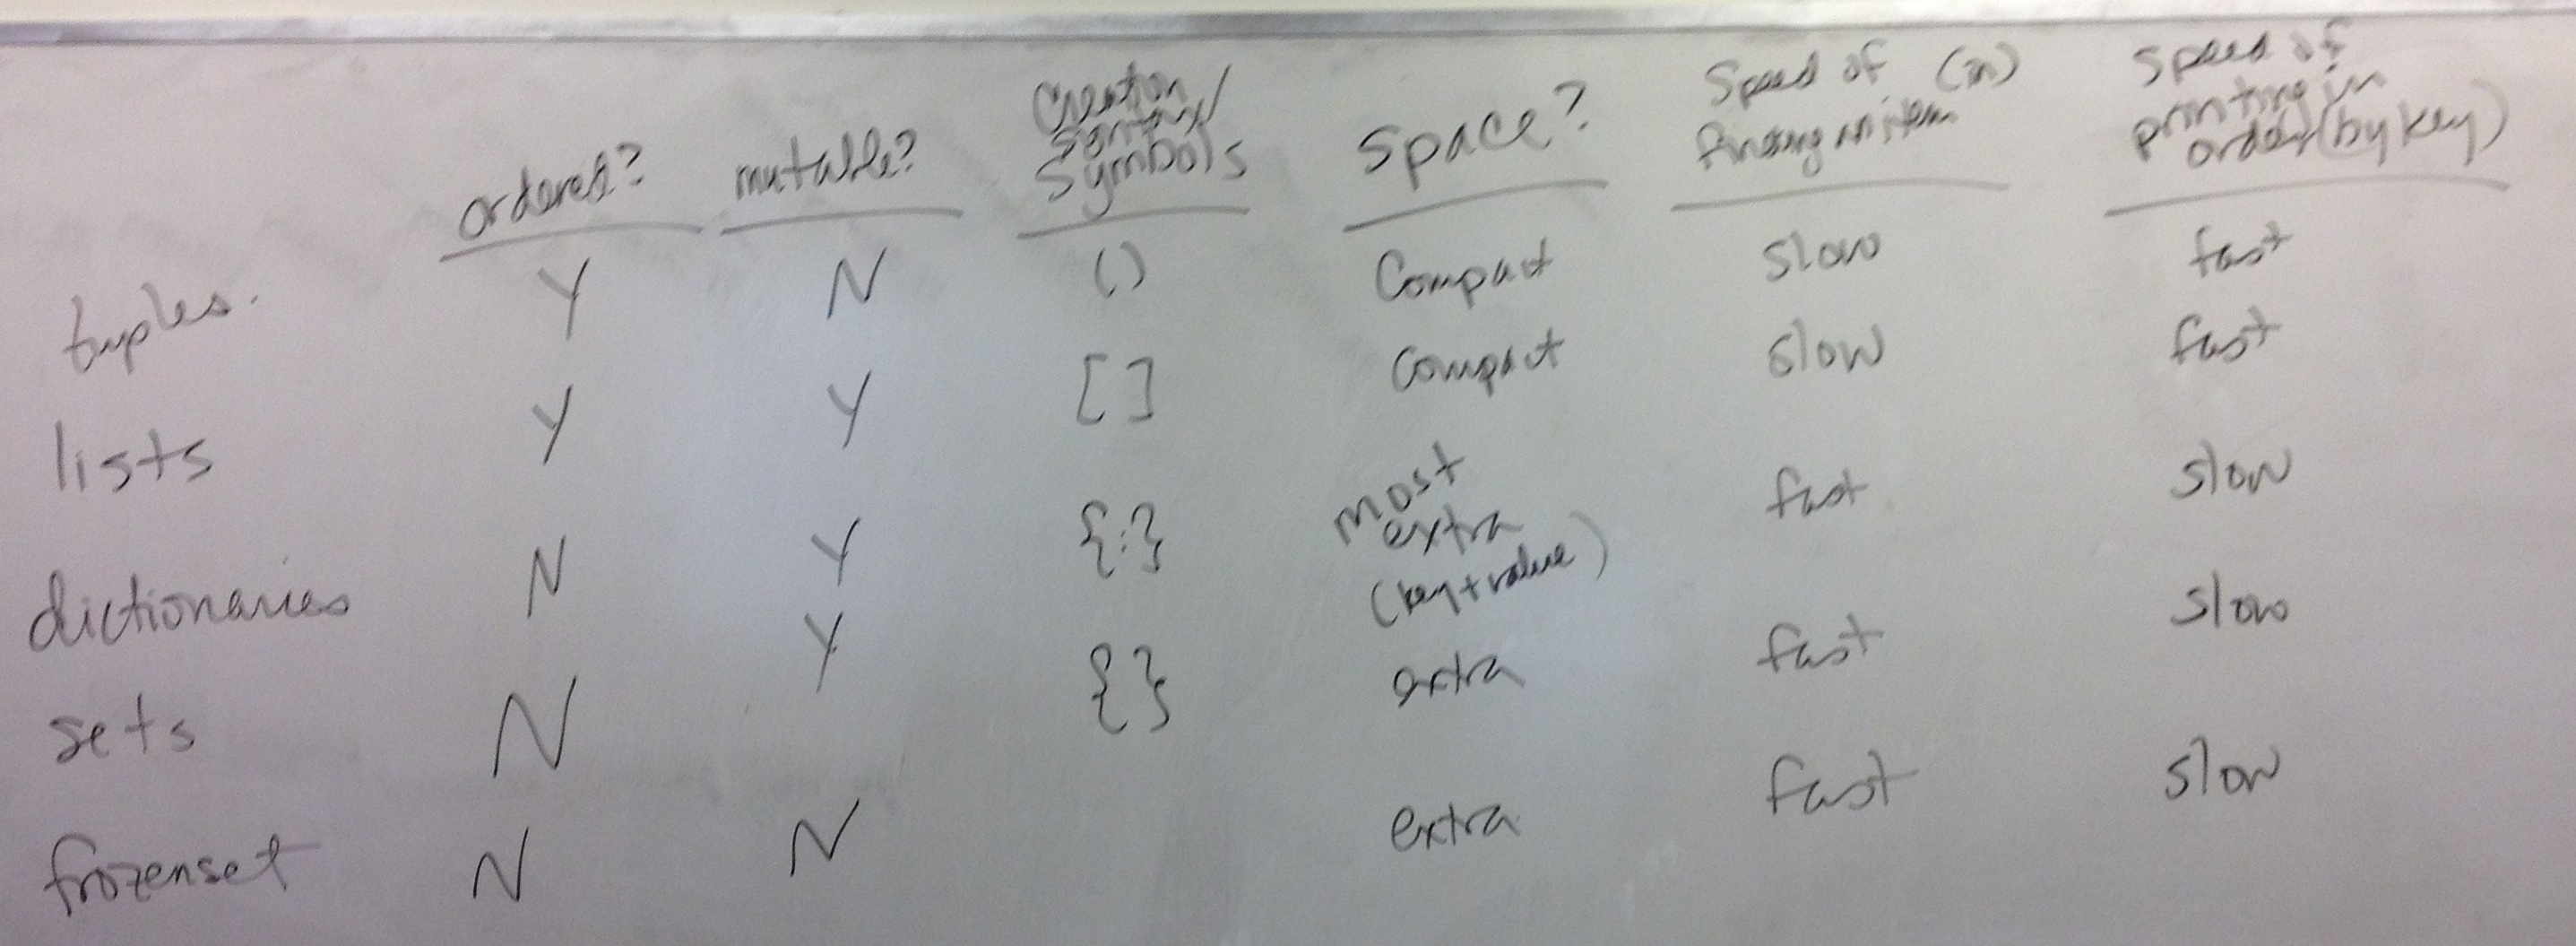 ordered? mutable? Creation Syntax/ Symbols Space? Speed of (in) finding an item Speed of printing in order (by key)
tuples. Y N () Compact slow fast
lists Y Y [] Compact slow fast
dictionaries N Y {:} most extra (key+value) fast slow
sets N Y {} extra fast slow
frozenset N N extra fast slow